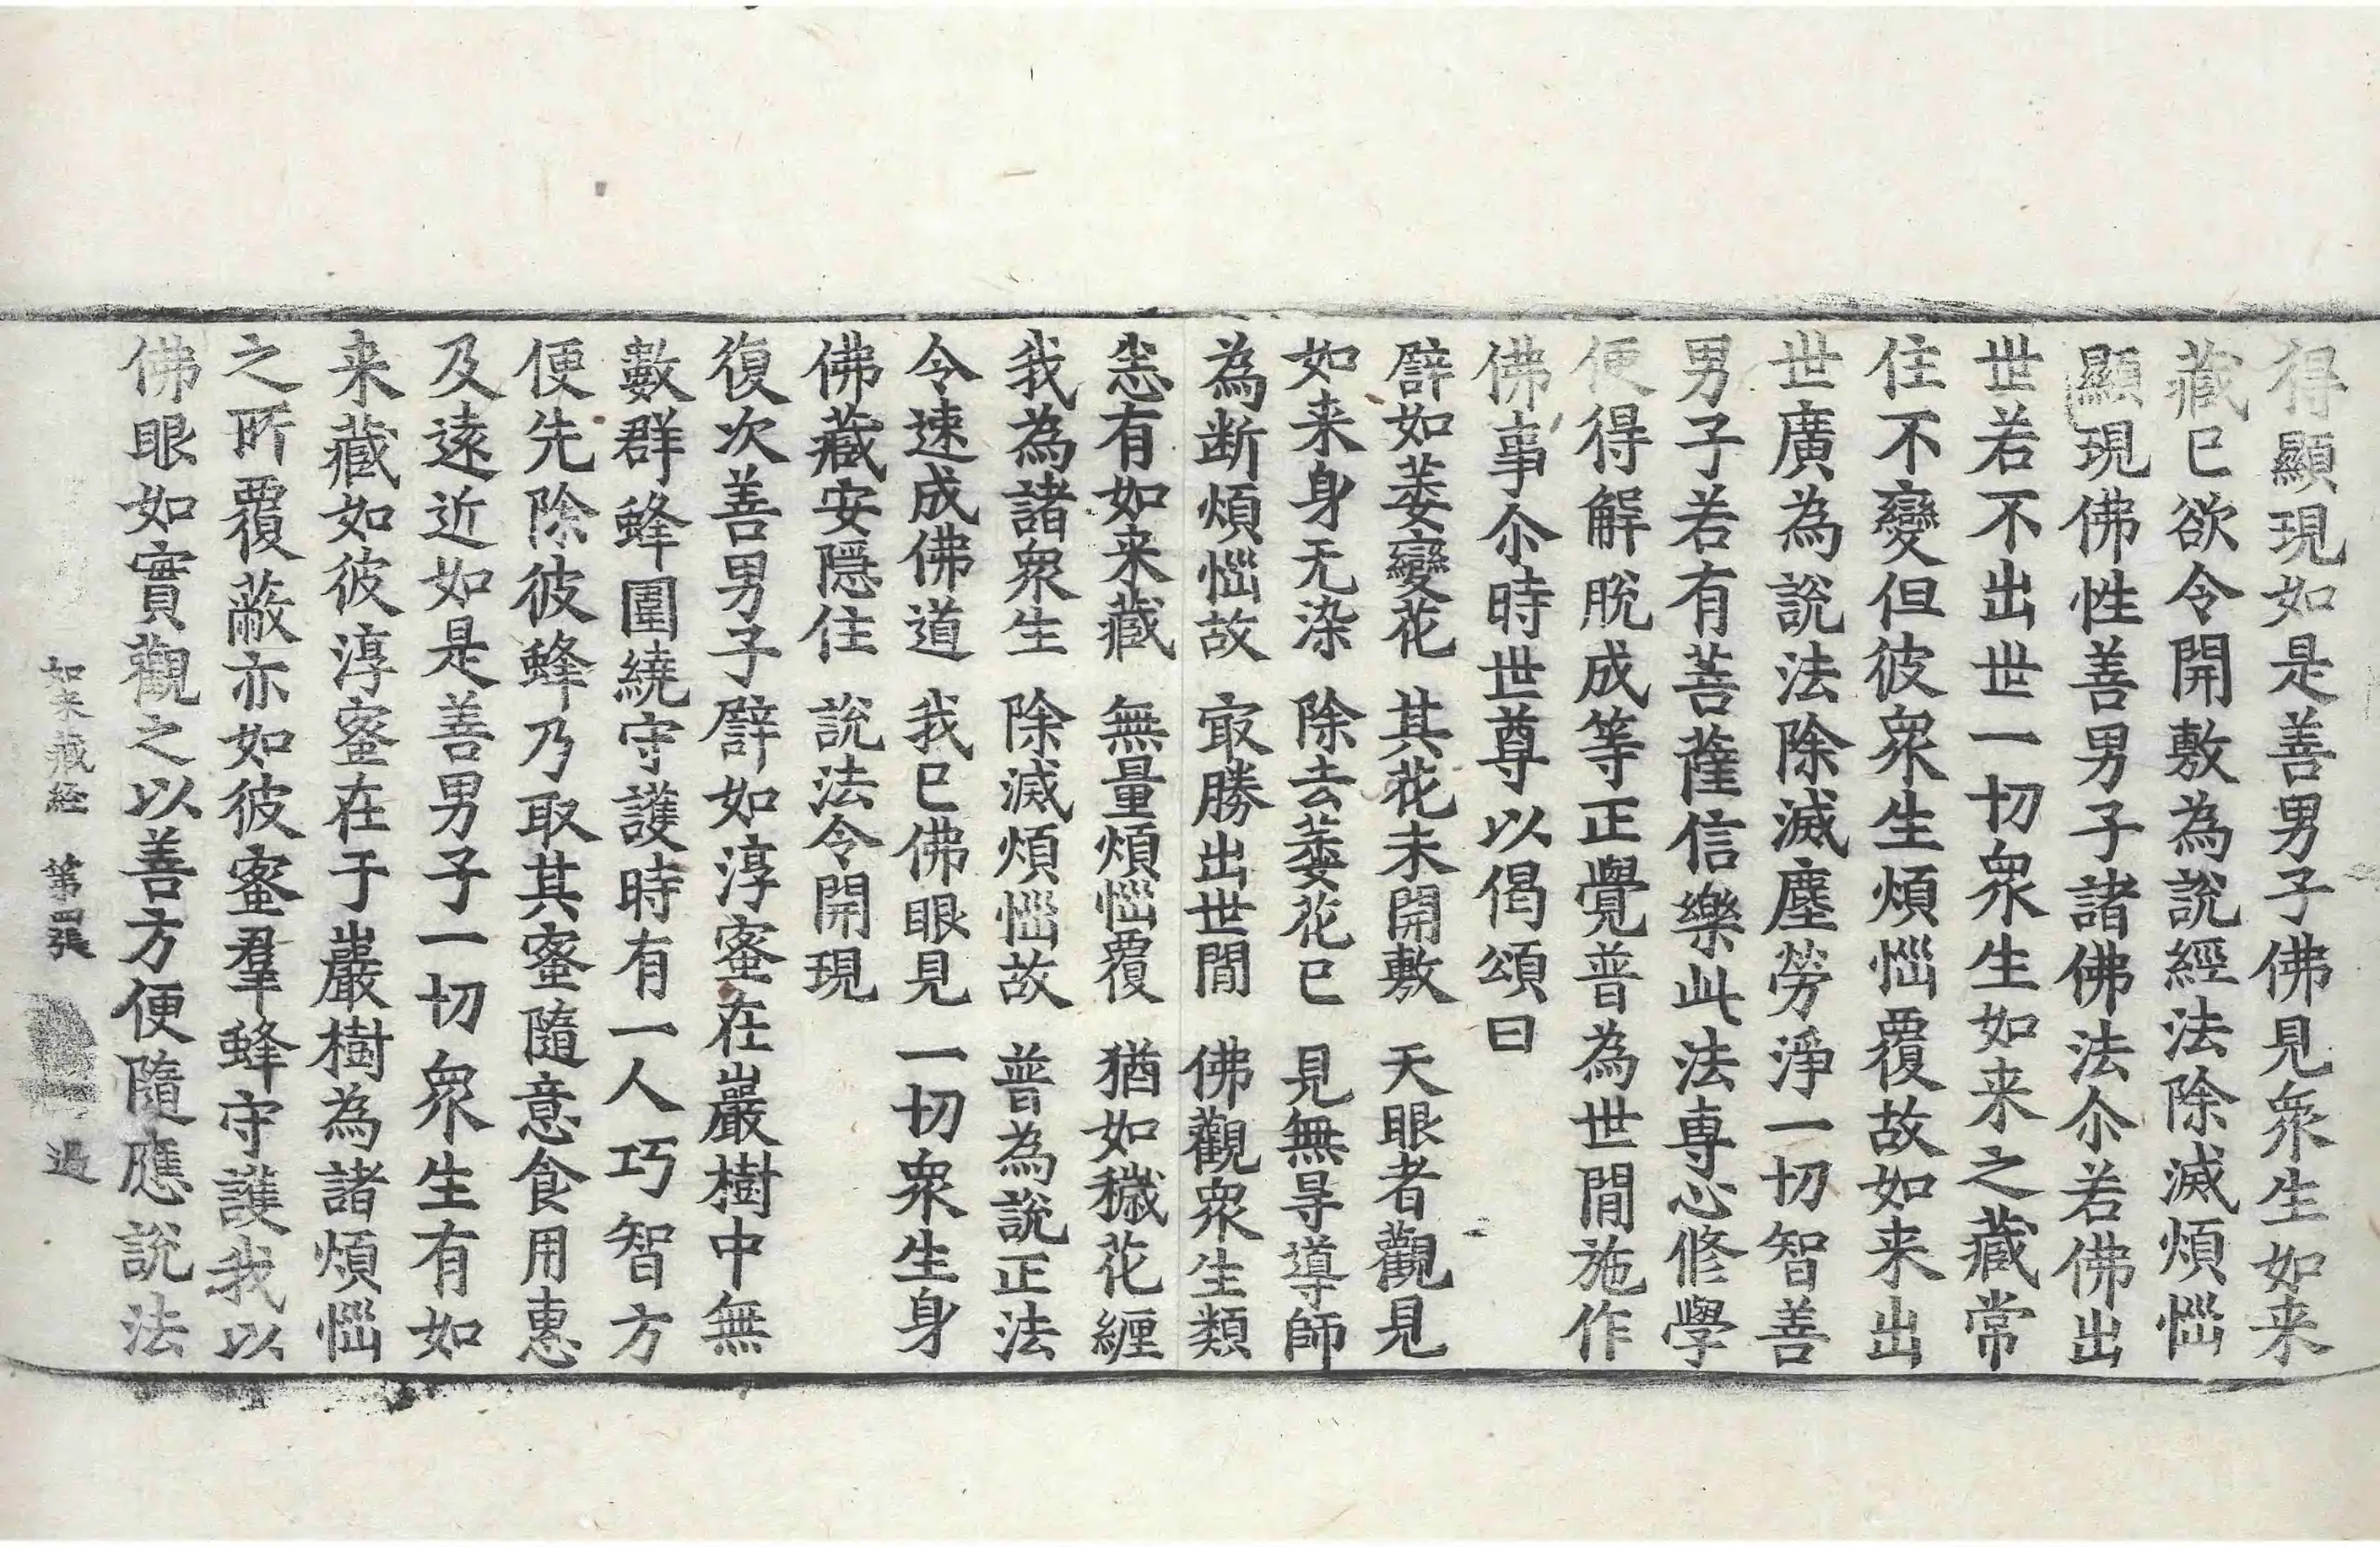 得顯現如是善男子佛見衆生如来
藏已欲令開敷為說經法除滅煩惱
顯現佛性善男子諸佛法尒若佛出
世若不出世一切衆生如来之藏常
住不變但彼衆生煩惱覆故如来出
世廣為說法除滅塵勞淨一切智善
男子若有菩薩信樂此法專心修學
便得解脫成等正覺普為世間施作
佛事尒時世尊以偈頌曰
譬如萎變花　其花未開敷　天眼者觀見
如来身无染　除去萎花已　見無㝵導師
為断煩惱故　㝡勝出世間　佛觀衆生類
悉有如来藏　無量煩惱覆　猶如穢花纏
我為諸衆生　除滅煩惱故　普為說正法
令速成佛道　我已佛眼見　一切衆生身
佛藏安隱住　說法令開現
復次善男子譬如淳蜜在巖樹中無
數群蜂圍繞守護時有一人巧智方
便先除彼蜂乃取其蜜隨意食用惠
及遠近如是善男子一切衆生有如
来藏如彼淳蜜在于巖樹為諸煩惱
之所覆蔽亦如彼蜜羣蜂守護我以
佛眼如實觀之以善方便隨應說法
如来藏經　第四張　過